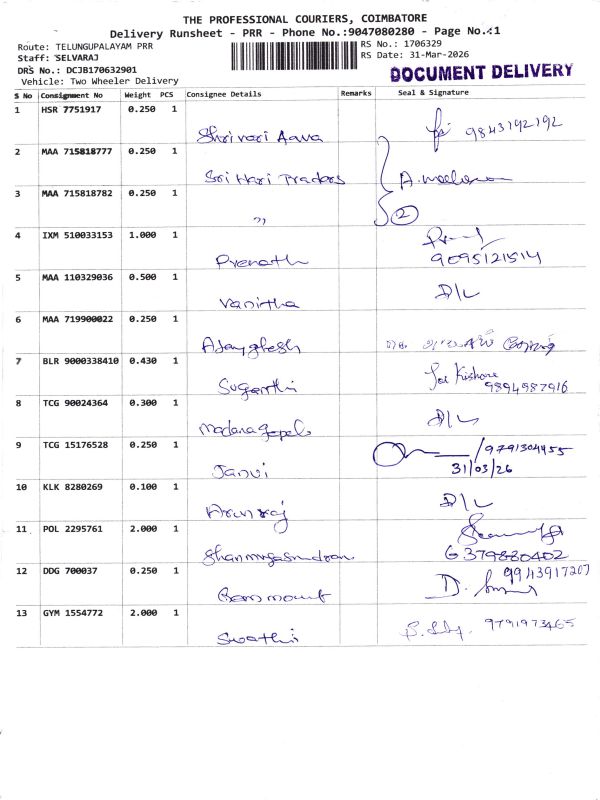 THE PROFESSIONAL COURIERS, COIMBATORE
Delivery Runsheet - PRR - Phone No.:9047080280 - Page No.:1
Route: TELUNGUPALAYAM PRR
RS No.: 1706329
Staff: SELVARAJ
RS Date: 31-Mar-2026
DRS No.: DCJB170632901
Vehicle: Two Wheeler Delivery
DOCUMENT DELIVERY
S No Consignment No Weight PCS Consignee Details Remarks Seal & Signature
1 HSR 7751917 0.250 1
Shrivari Aava 9843192192
2 MAA 715818777 0.250 1
Sri Hari Traders
3 MAA 715818782 0.250 1
" 2
4 IXM 510033153 1.000 1
Prenath 9095121514
5 MAA 110329036 0.500 1
Vanitha D/L
6 MAA 719900022 0.250 1
7 BLR 9000338410 0.430 1
Suganthi Jai Kishore 9894987916
8 TCG 90024364 0.300 1
Madana gopal D/L
9 TCG 15176528 0.250 1
Janvi /9791304455
31/03/26
10 KLK 8280269 0.100 1
Arunraj D/L
11 POL 2295761 2.000 1
Shanmugasundram 6379880402
12 DDG 700037 0.250 1
9943917207
13 GYM 1554772 2.000 1
Swathi 9791973465